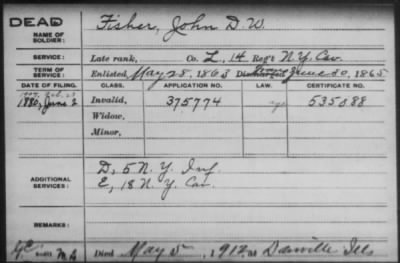 DEAD
NAME OF SOLDIER: Fisher, John D. W.
SERVICE: Late rank, Co. L, 14 Reg't N.Y. Cav.
TERM OF SERVICE: Enlisted May 28, 1863 Discharged June 30, 1865
DATE OF FILING. CLASS. APPLICATION NO. LAW. CERTIFICATE NO.
1880, June 2 Invalid, 375774 535088
Widow,
Minor,
ADDITIONAL SERVICES: D, 5 N.Y. Inf
E, 18 N.Y. Cav.
REMARKS:
Died May 5, 1912, at Danville Ills